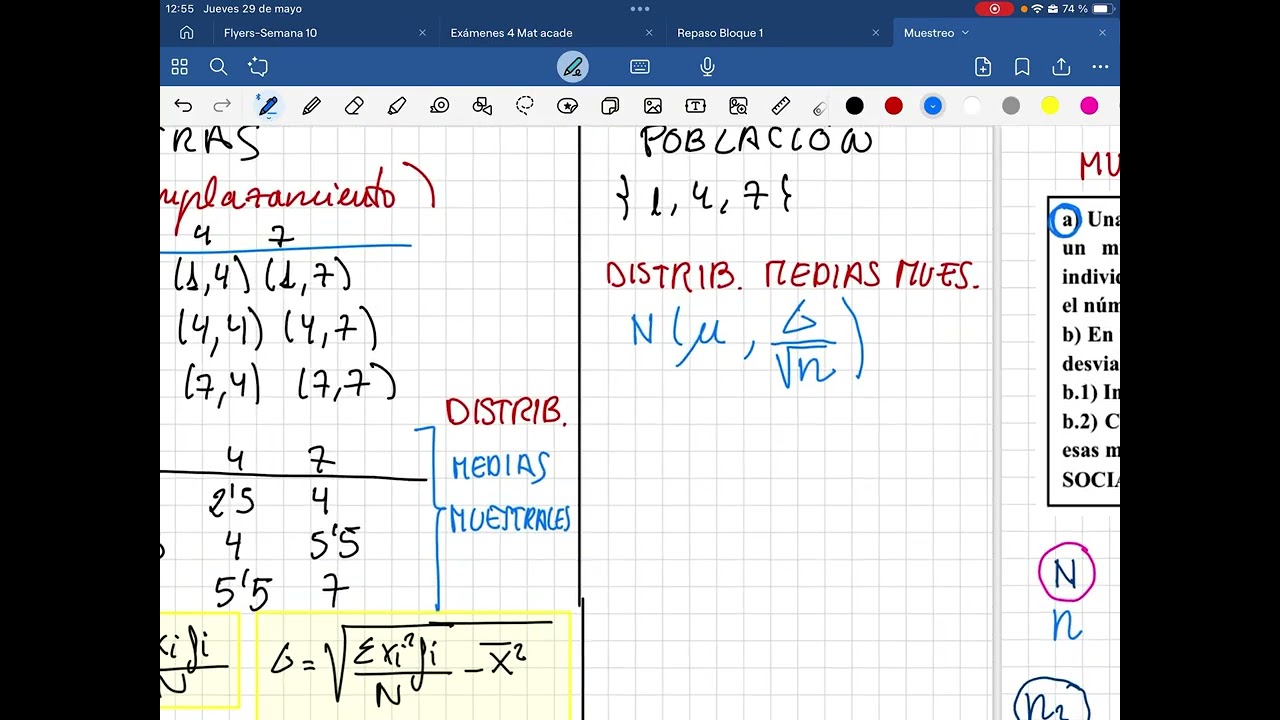 12:55 Jueves 29 de mayo
74 %
Flyers-Semana 10
Exámenes 4 Mat acade
Repaso Bloque 1
Muestreo
RAS
mplazamiento)
4 7
(1,4) (1,7)
(4,4) (4,7)
(7,4) (7,7)
4 7
2'5 4
4 5'5
5'5 7
DISTRIB.
MEDIAS
MUESTRALES
xi fi
N
σ = √ Σxi² fi / N − x̄²
POBLACIÓN
} 1, 4, 7 {
DISTRIB. MEDIAS MUES.
N(μ, σ/√n)
MU
a) Una
un m
individ
el núm
b) En
desvia
b.1) In
b.2) C
esas m
SOCIA
N
n